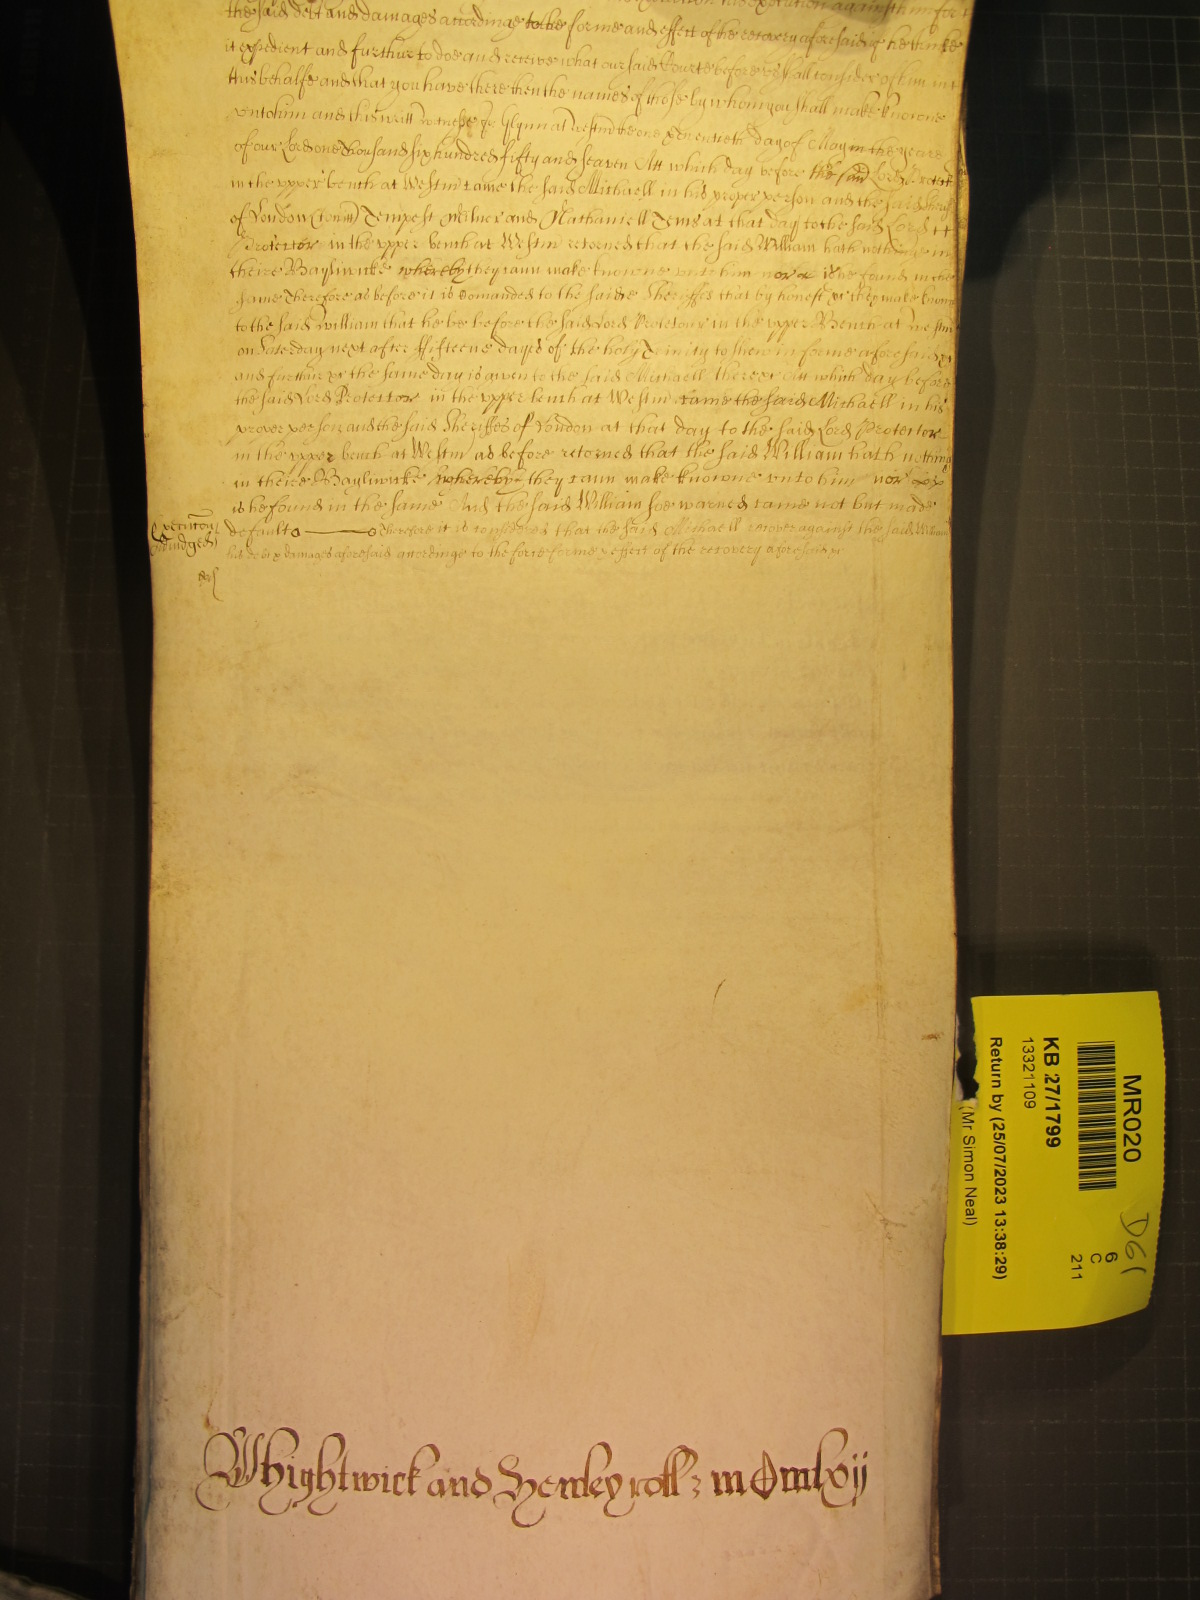 the said debt and damages accordinge to the forme and effect of the recovery aforesaid if he thinke
it expedient and further to doe and receive what our said Courte before us shall consider of him in
this behalfe and that you have there then the names of those by whom you shall make knowne
unto him and this writt Witnesse J. Glynn at Westm the one & day of May in the yeare
of our Lord one thousand six hundred fifty and seaven Att which day before the said Lord Protect
in the upper bench at Westm came the said Michaell in his proper person and the said Sher
of London (to witt) Tempest Milner and Nathaniell Tems at that day to the said Lord
Protector in the upper bench at Westm retorned that the said William hath nothinge in
theire Bayliwicke whereby they cann make knowne unto him nor is he found in the
same Therefore as before it is comanded to the saide Sheriffes that by honest &c they make knowne
to the said William that he be before the said Lord Protectour in the upper Bench at Westm
on Saturday next after fifteene dayes of the holy Trinity to shew in forme aforesaid
and further &c the same day is given to the said Michaell there &c Att which day before
the said Lord Protector in the upper bench at Westm came the said Michaell in his
proper person and the said Sheriffes of London at that day to the said Lord Protector
in the upper bench at Westm as before retorned that the said William hath nothing
in theire Bayliwicke whereby they cann make knowne unto him nor
is he found in the same And the said William soe warned came not but made
default Therefore it is considered that the said Michaell recover against the said William
his debt & damages aforesaid accordinge to the force forme & effect of the recovery aforesaid &c
adiudged
Whightwick and Henley roll: m Dmlxij
MR020
KB 27/1799
13321109
Return by (25/07/2023 13:38:29)
(Mr Simon Neal)
D61
6
C
211